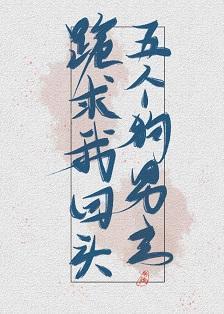 五个狗男主
跪求我回头